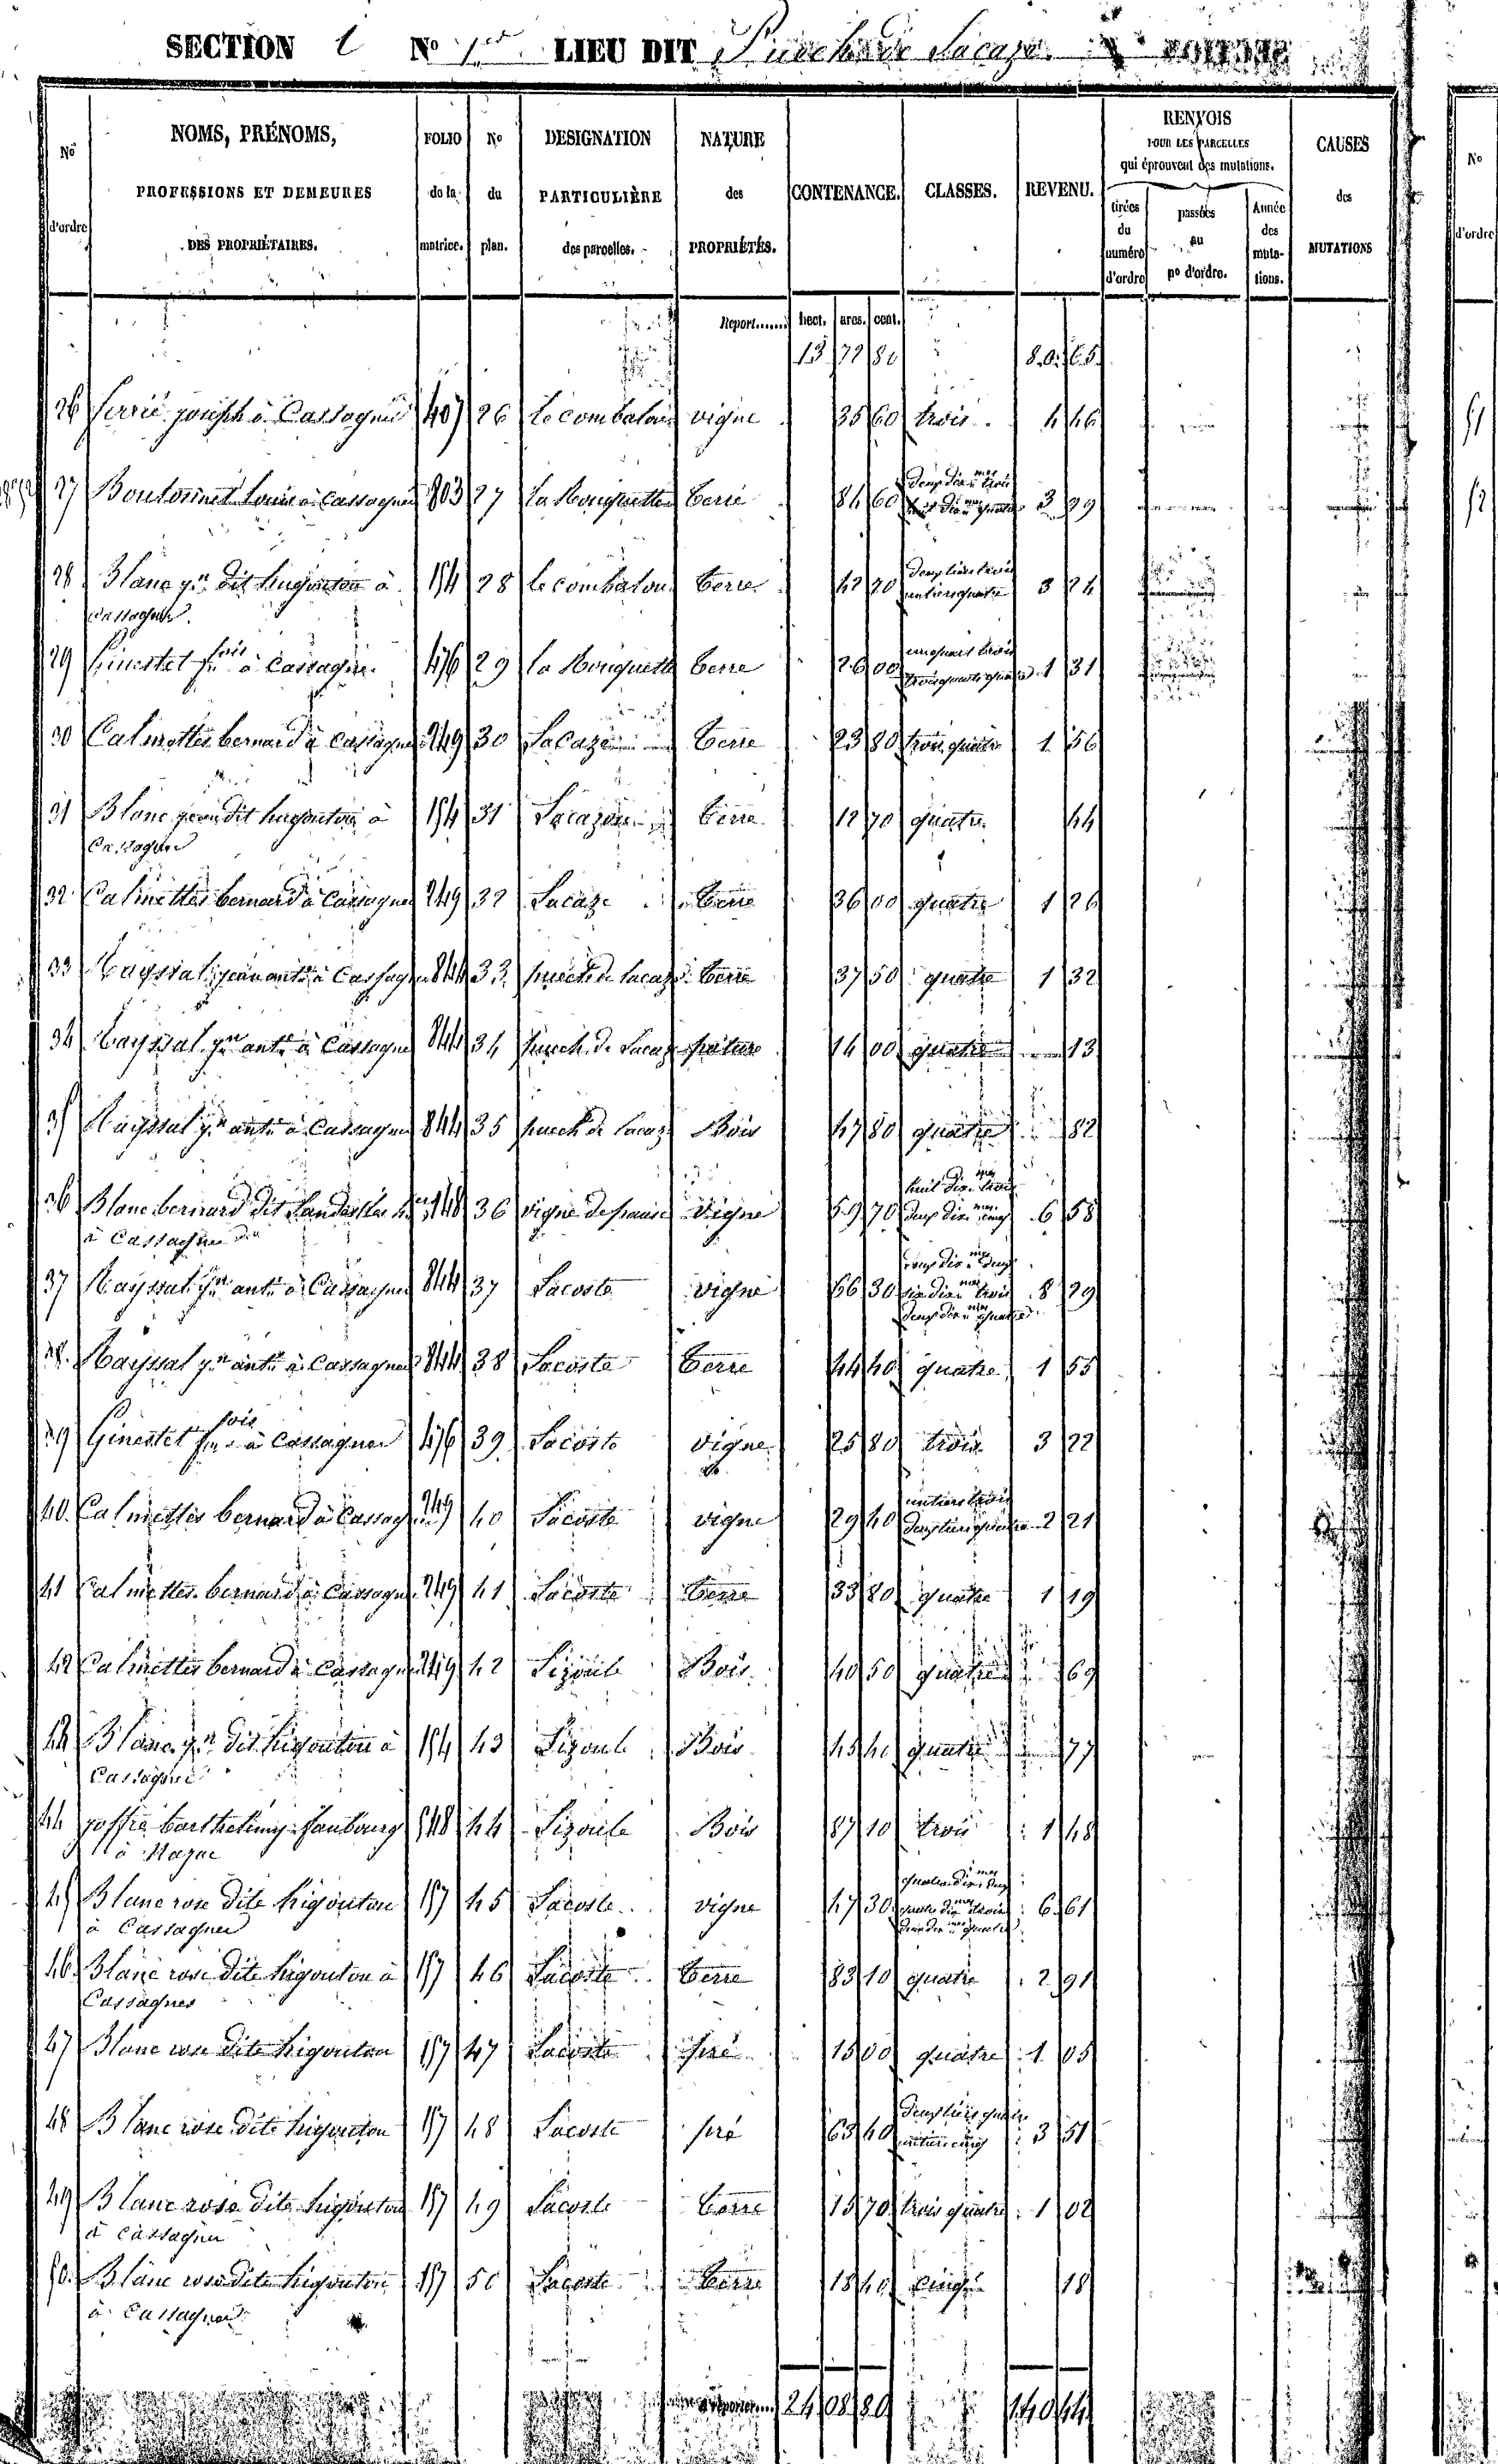 SECTION No 1er LIEU DIT Puech de Lacaze
No d'ordre
NOMS, PRÉNOMS, PROFESSIONS ET DEMEURES DES PROPRIÉTAIRES.
FOLIO de la matrice.
No du plan.
DESIGNATION PARTICULIÈRE des parcelles.
NATURE des PROPRIÉTÉS.
CONTENANCE.
CLASSES.
REVENU.
RENVOIS POUR LES PARCELLES qui éprouvent des mutations.
tirées du numéro d'ordre
passées au no d'ordre.
Année des muta-tions.
CAUSES des MUTATIONS
No d'ordre
Report...... hect. ares. cent.
13 72 80 80 65
26 joseph à Cassagnes 407 26 le combalou vigne 35 60 trois 4 46
27 Boutonnet Louis à Cassagnes 27 la Rouquette terre 84 60 3 29
28 Blanc jn dit higounton à 154 28 le combalou terre 42 20 deux tiers trois un tiers quatre 3 24
cassagnes
29 Ginestet fois à Cassagnes 476 29 la Rouquette terre 26 00 un quart trois trois quarts quatre 1 31
30 Calmettes bernard à Cassagnes 249 30 Lacaze terre 23 80 trois quatre 1 56
31 Blanc jean dit higounton à 154 31 Lacaze terre 12 70 quatre 44
Cassagnes
32 Calmettes bernard à Cassagnes 249 32 Lacaze terre 36 00 quatre 1 26
33 Mayssal jean ante à Cassagnes 844 33 puech de Lacaze terre 37 50 quatre 1 32
34 Mayssal jn ante à Cassagnes 844 34 puech de Lacaze pature 14 00 quatre 13
35 Mayssal jn ante à Cassagnes 844 35 puech de Lacaze Bois 47 80 quatre 82
36 Blanc bernard dit 148 36 vigne vigne 59 70 huit dixmes trois deux dixmes cinq 6 58
à Cassagnes
37 Mayssal jn ante à Cassagnes 844 37 Lacoste vigne 66 30 six dixmes trois deux dixmes quatre 8 29
38 Mayssal jn ante à Cassagnes 844 38 Lacoste terre 44 40 quatre 1 55
39 Ginestet fois à Cassagnes 476 39 Lacoste vigne 25 80 trois 3 22
40 Calmettes bernard à Cassagnes 249 40 Lacoste vigne 29 40 un tiers trois deux tiers quatre 2 21
41 Calmettes bernard à Cassagnes 249 41 Lacoste terre 33 80 quatre 1 19
42 Calmettes bernard à Cassagnes 249 42 Lizoule Bois 40 50 quatre 69
43 Blanc jn dit higounton à 154 43 Lizoule Bois 45 40 quatre 77
Cassagnes
44 joffre barthelemy faubourg 548 44 Lizoule Bois 87 10 trois 1 48
à Najac
45 Blanc rose dite higounton 157 45 Lacoste vigne 47 30 6 61
à Cassagnes
46 Blanc rose dite higounton à 157 46 Lacoste terre 83 10 quatre 2 91
Cassagnes
47 Blanc rose dite higounton 157 47 Lacoste pré 15 00 quatre 1 05
48 Blanc rose dite higounton 157 48 Lacoste pré 63 40 deux tiers quatre un tiers cinq 3 51
49 Blanc rose dite higounton 157 49 Lacoste terre 15 70 trois quatre 1 02
à Cassagnes
50 Blanc rose dite higounton 157 50 Lacoste terre 18 40 cinq 18
à Cassagnes
24 08 80 140 44